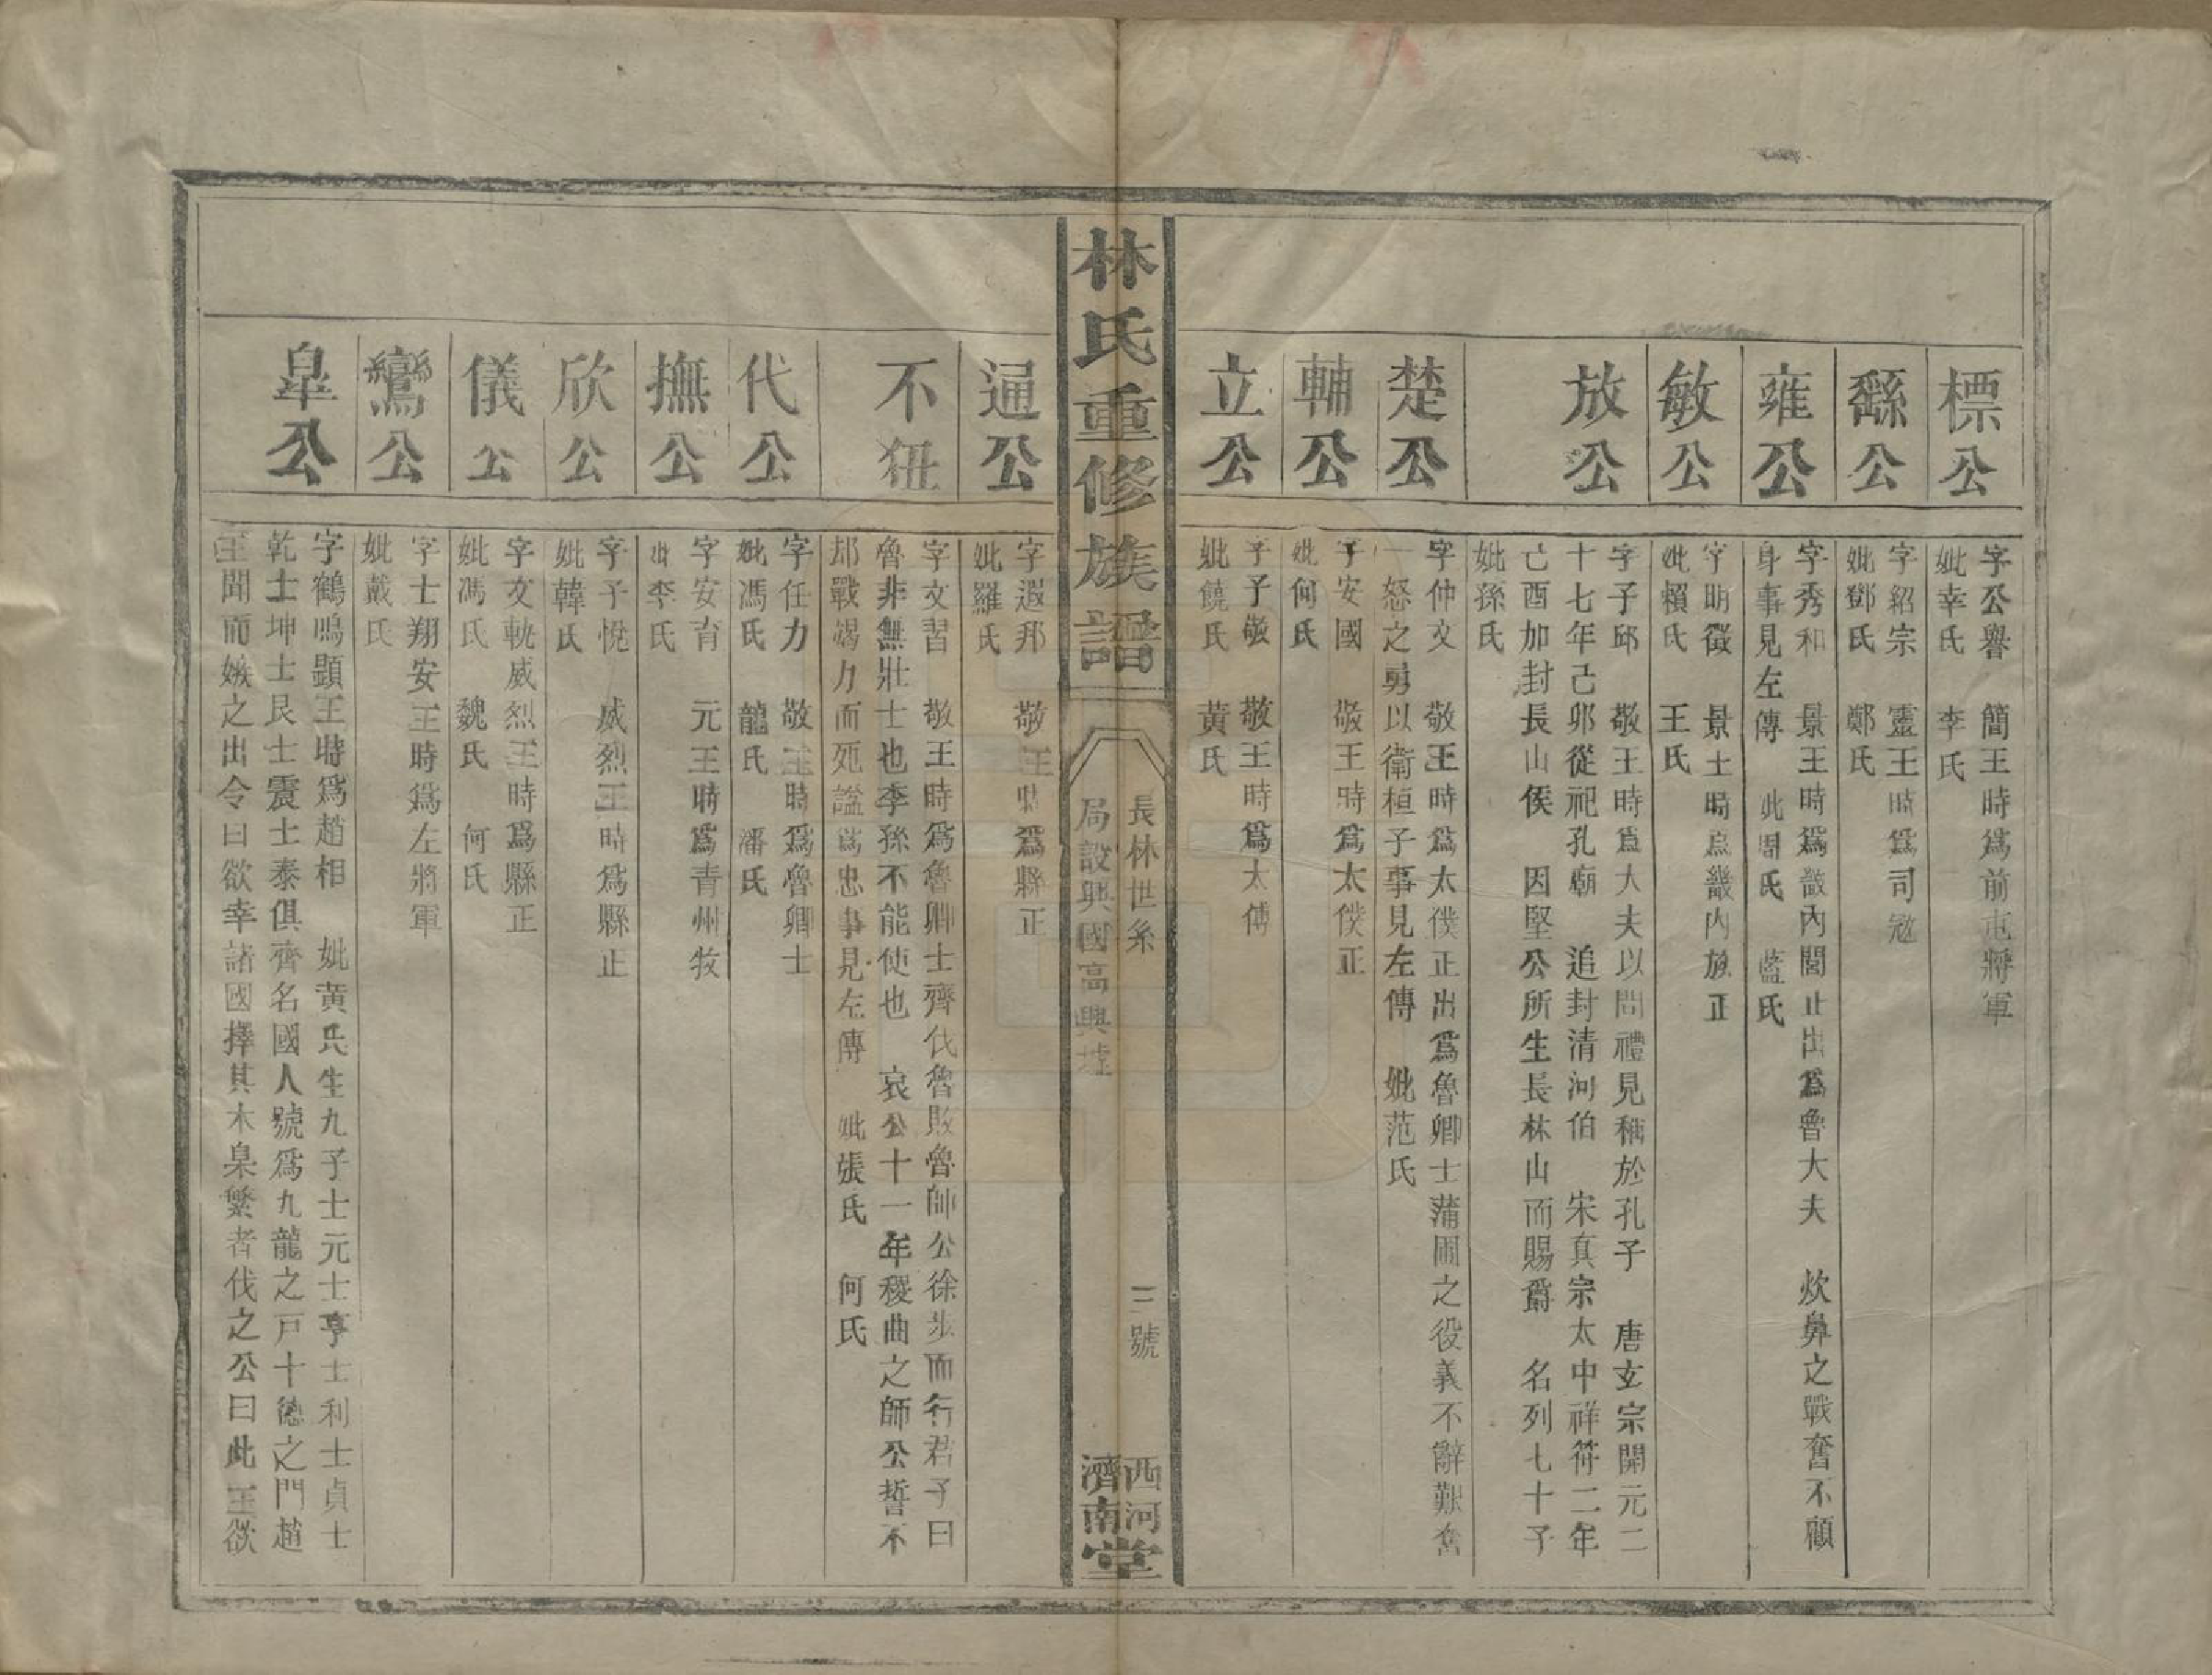 標公
字公譽　簡王時爲前屯將軍
妣幸氏　李氏
繇公
字紹宗　靈王時爲司寇
妣鄧氏　鄭氏
雍公
字秀和　景王時爲畿內閭止出爲魯大夫　炊鼻之戰奮不顧
身事見左傳　妣周氏　藍氏
敏公
字明徵　景士時爲畿內族正
妣賴氏　王氏
放公
字子邱　敬王時爲大夫以問禮見稱於孔子　唐玄宗開元二
十七年己卯從祀孔廟　追封清河伯　宋真宗太中祥符二年
己酉加封長山侯　因堅公所生長林山而賜爵　名列七十子
妣孫氏
楚公
字仲文　敬王時爲太僕正出爲魯卿士蒲圃之役義不辭難奮
一怒之勇以衛桓子事見左傳　妣范氏
輔公
字安國　敬王時爲太僕正
妣何氏
立公
字子敬　敬王時爲太傅
妣饒氏　黃氏
林氏重修族譜
長林世系
局設興國高興墟
三號
西河
濟南
堂
通公
字遐邦　敬王時爲縣正
妣羅氏
不狃
字文習　敬王時爲魯卿士齊伐魯敗魯師公徐步而行君子曰
魯非無壯士也李孫不能使也　哀公十一年稷曲之師公誓不
却戰竭力而死謚爲忠事見左傳　妣張氏　何氏
代公
字任力　敬王時爲魯卿士
妣馮氏　龍氏　潘氏
撫公
字安育　元王時爲青州牧
妣李氏
欣公
字子悅　威烈王時爲縣正
妣韓氏
儀公
字文軌威烈王時爲縣正
妣馮氏　魏氏　何氏
鸞公
字士翔安王時爲左將軍
妣戴氏
皐公
字鶴鳴顯王時爲趙相　妣黃氏生九子士元士亨士利士貞士
乾士坤士艮士震士泰俱齊名國人號爲九龍之戸十德之門趙
王聞而嫉之出令曰欲幸諸國擇其木臬繁者伐之公曰此王欲